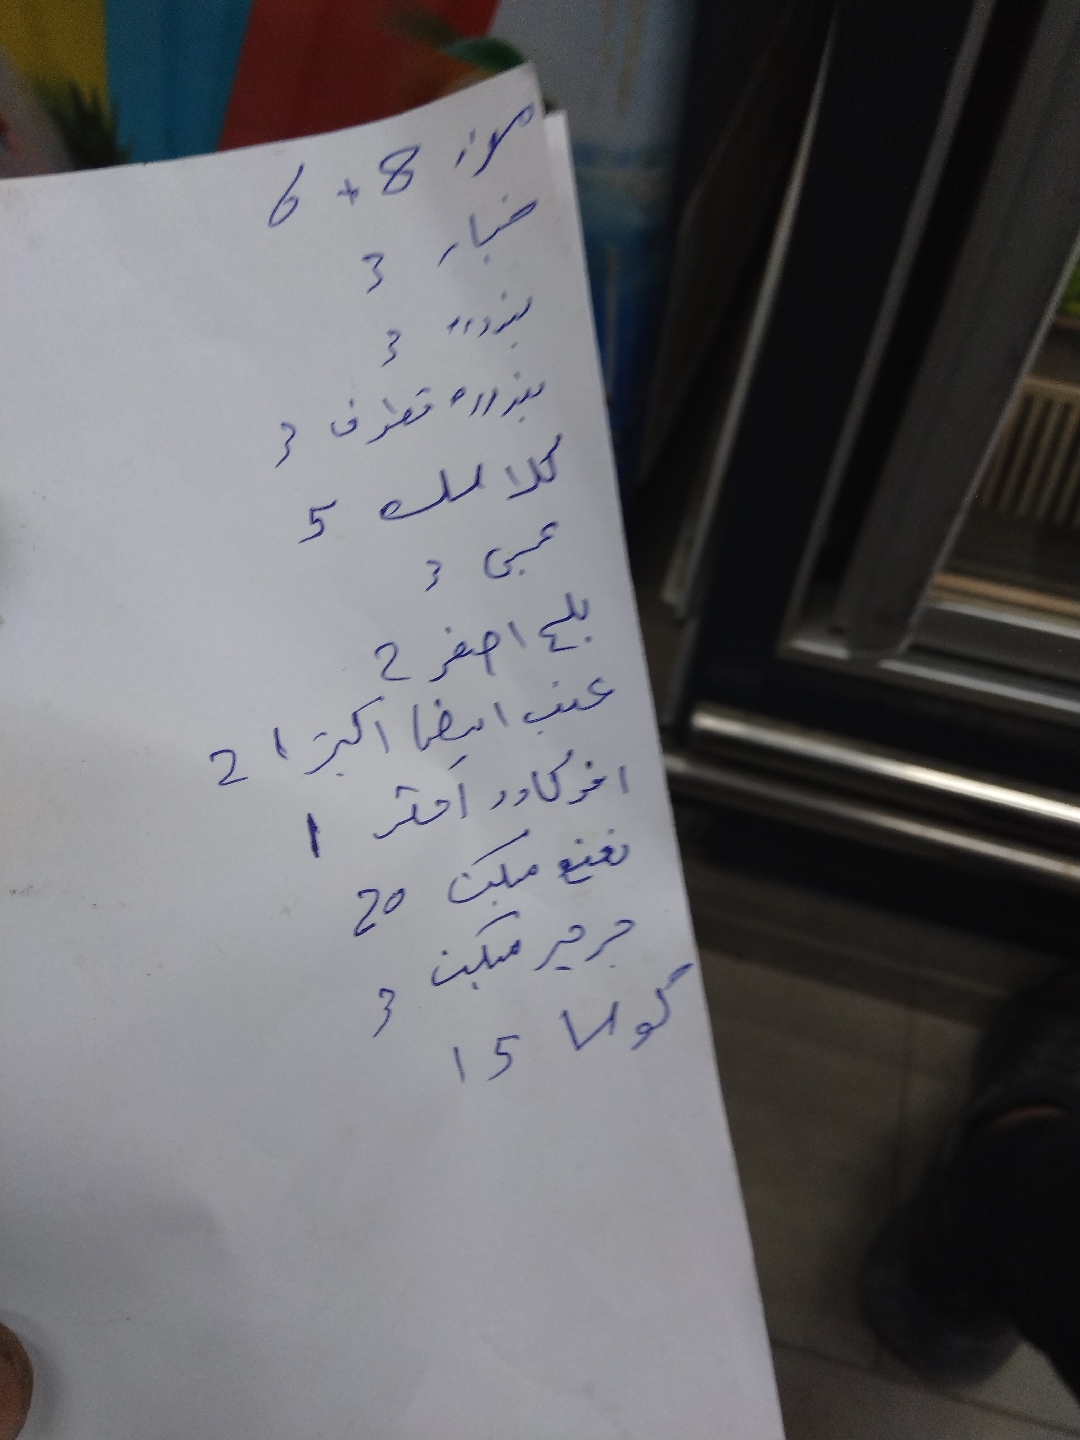 موز 8 + 6
خيار 3
بندوره 3
بندوره قطرف 3
كلامسك 5
عجمي 3
بلح اصفر 2
عنب ابيضا اكبترا 2
افوكادو اخضر 1
نعنع مبكت 20
جرجير مبكت 3
كوسا 15